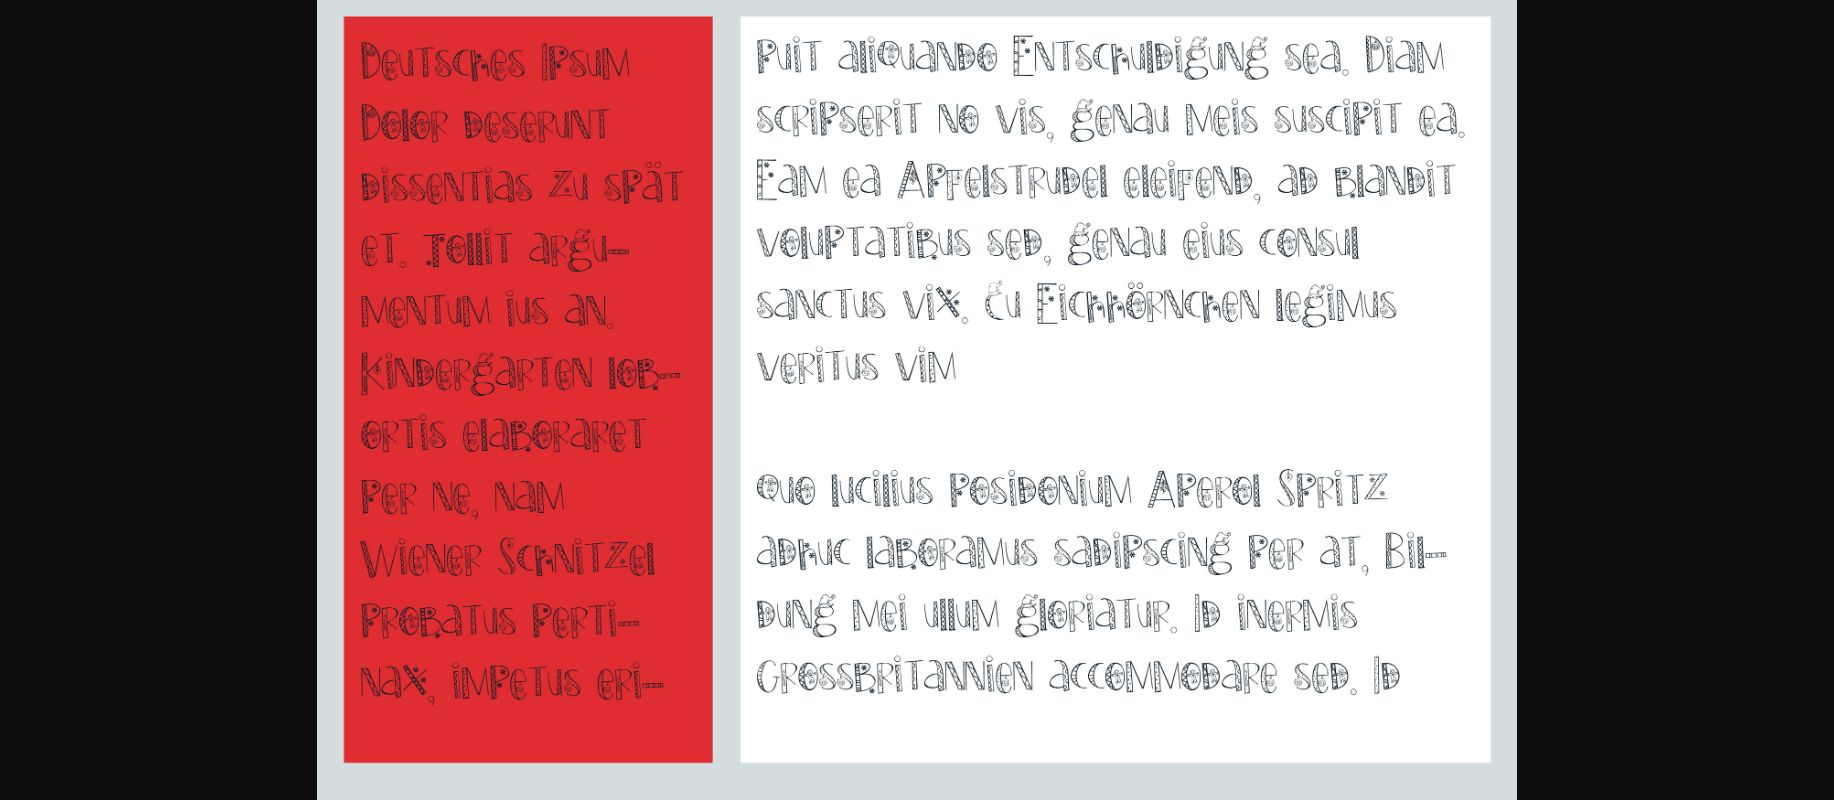 Deutsches Ipsum
Dolor deserunt
dissentias zu spät
et. Tollit argu-
mentum ius an.
Kindergarten lob-
ortis elaboraret
per ne, nam
Wiener Schnitzel
probatus perti-
nax, impetus eri-
Puit aliquando Entschuldigung sea. Diam
scripserit no vis, genau meis suscipit ea.
Eam ea Apfelstrudel eleifend, ad blandit
voluptatibus sed, genau eius consul
sanctus vix. Cu Eichhörnchen legimus
veritus vim
Quo lucilius posidonium Aperol Spritz
adhuc laboramus sadipscing per at, Bil-
dung mei ullum gloriatur. Id inermis
Grossbritannien accommodare sed. Id